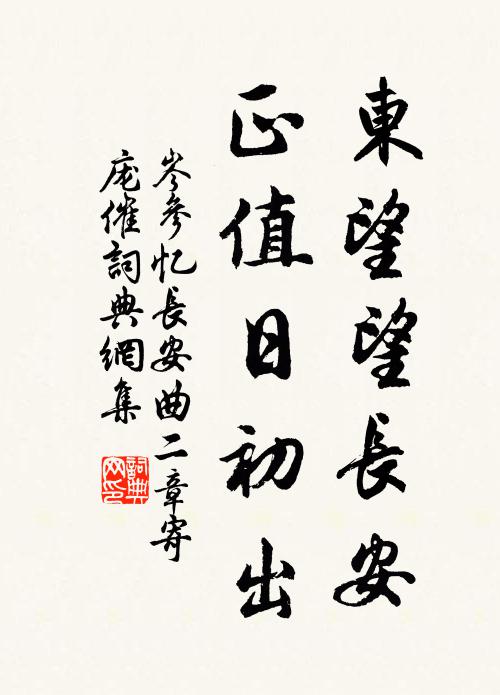 東望望長安
正值日初出
岑參忆長安曲二章寄
庞催詞典網集
詞典
网印